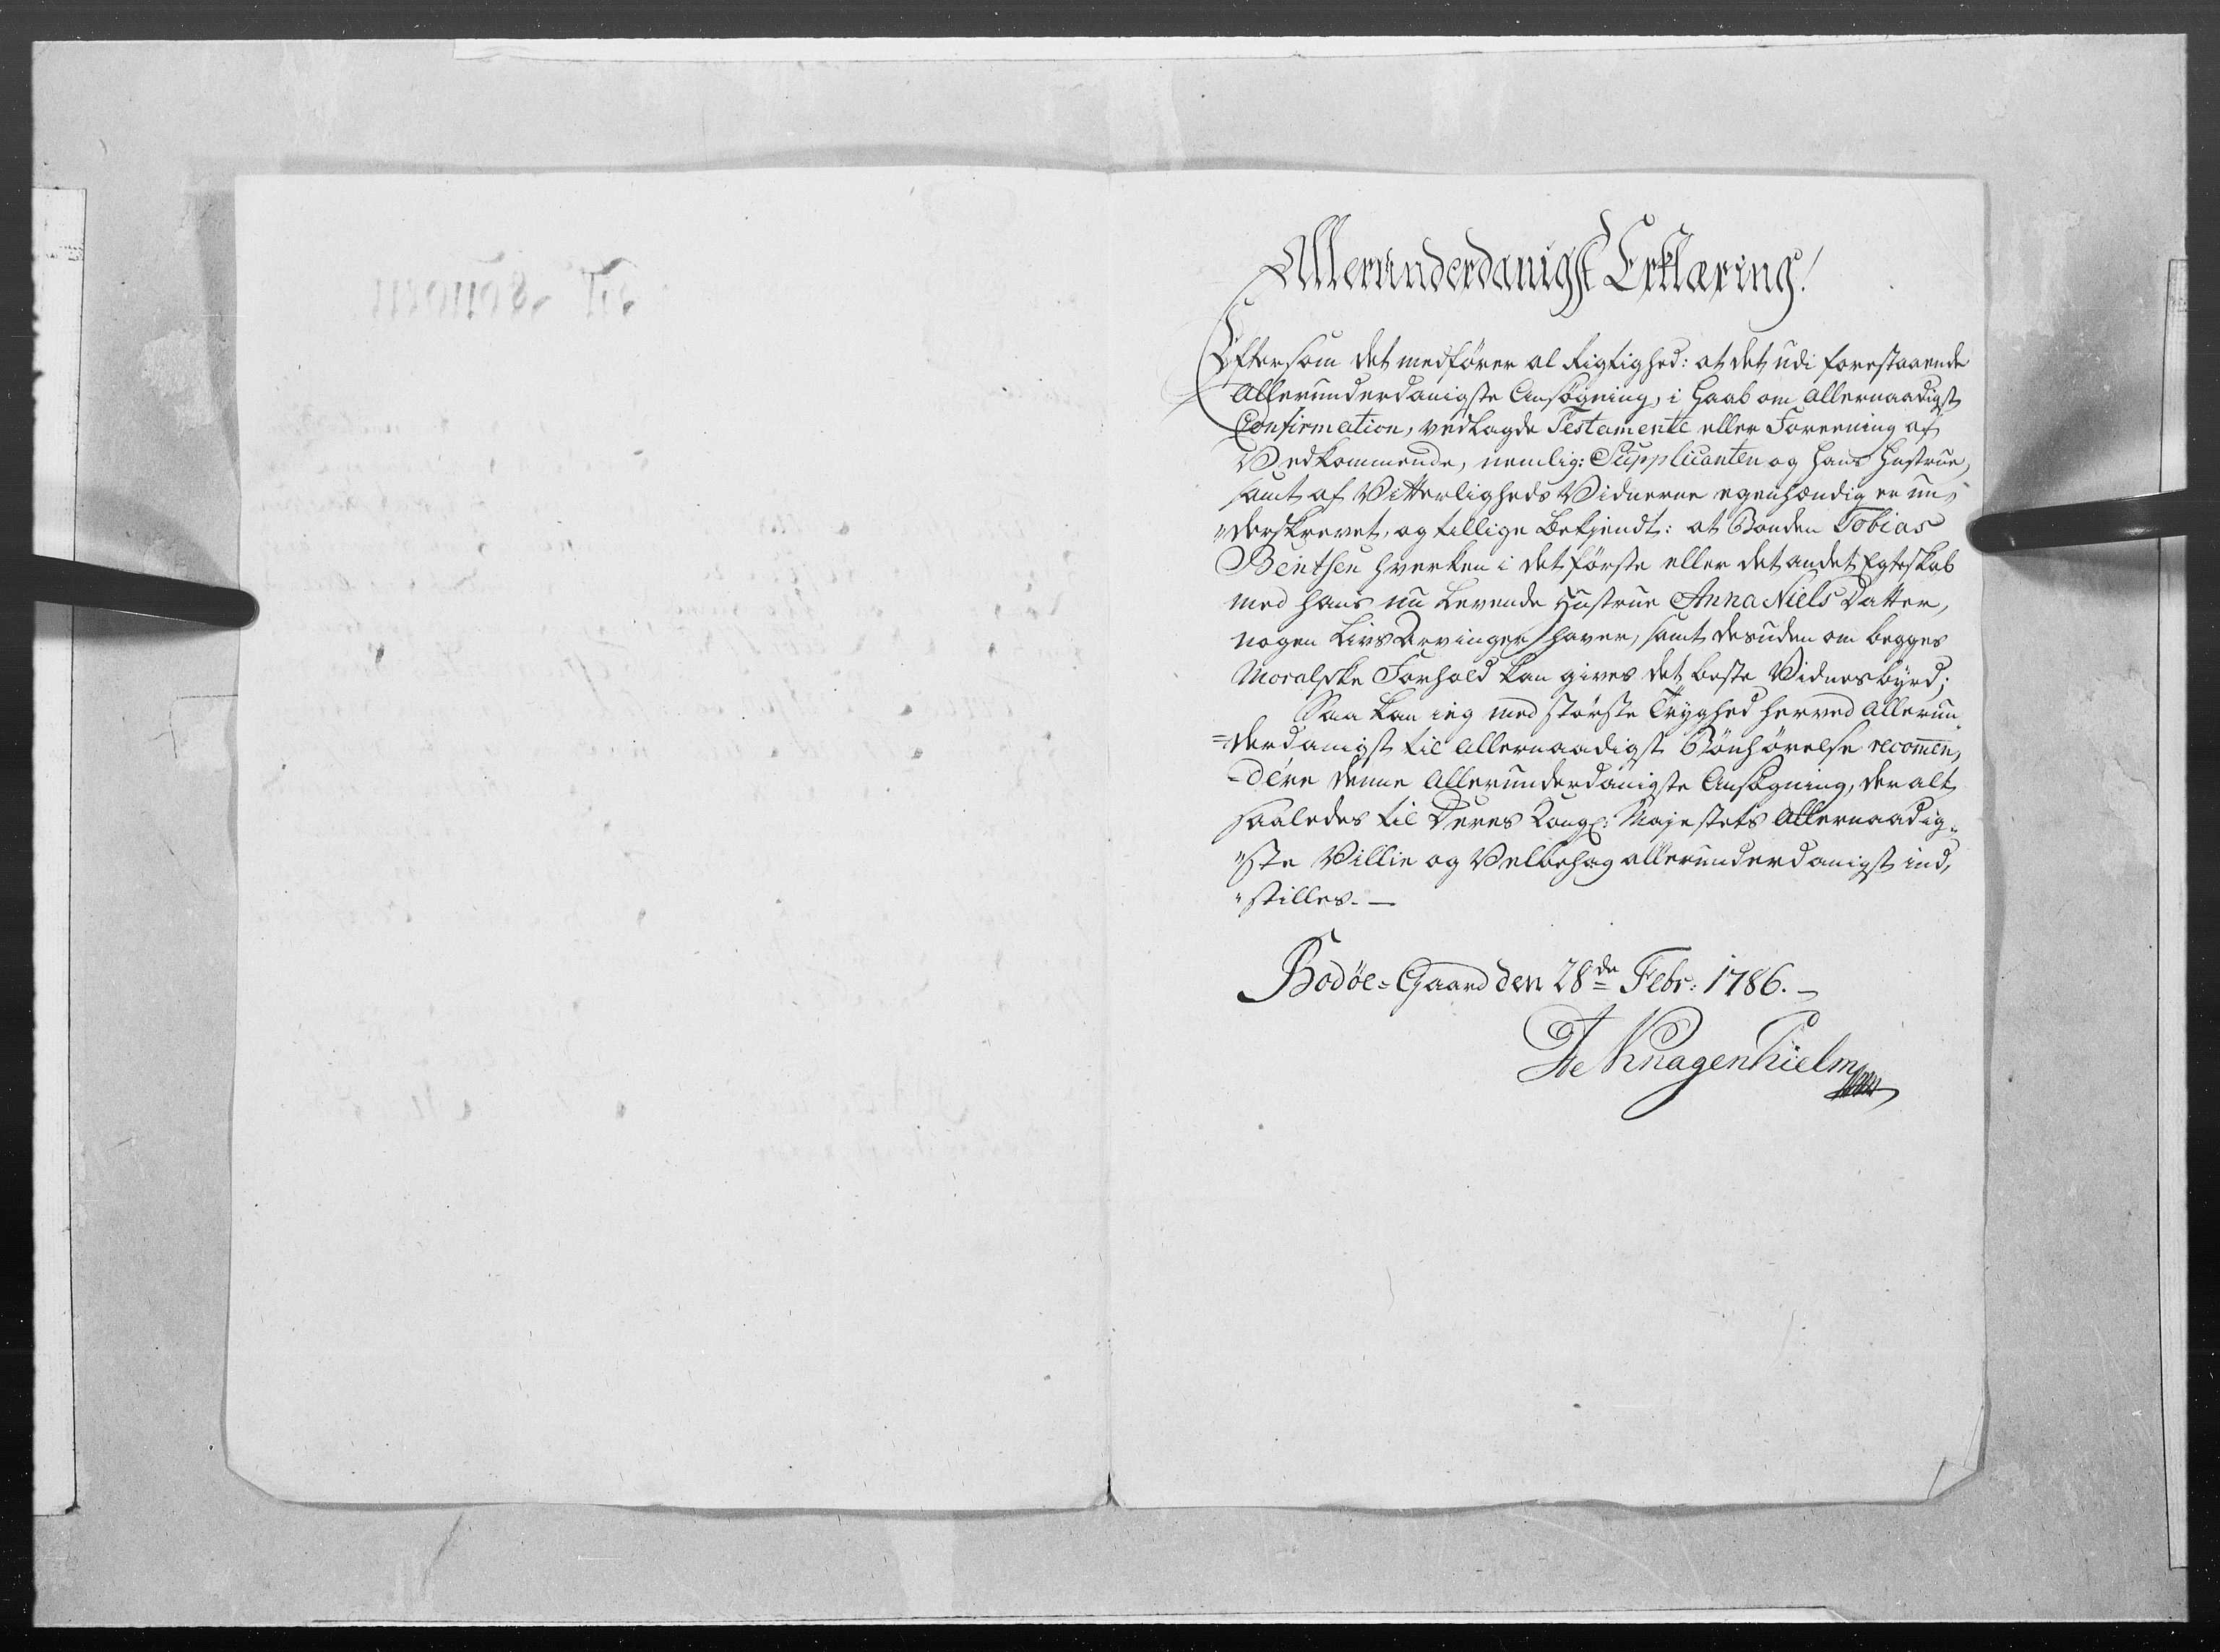 Allerunderdanigst Erklæring!
Eftersom det medfører al Rigtighed: at det udi forestaaende
Allerunderdanigste Ansøgning, i Haab om Allernaadigst
Confirmation, vedlagde Testamente eller Foreening af
Vedkommende, nemlig: Supplicanten og Hans Hustrue,
samt af Vitterligheds Vidnerne egenhændig er un,,
,,derskrevet, og tillige Bekjendt: at Bonden Tobias
Bentsen hverken i det første eller det andet Egteskab
med hans nu levende Hustrue Anna Niels Datter,
nogen Livs Arvinger haver, samt desuden om begges
Moralske Forhold kan gives det beste Vidnesbyrd;
Saa kan ieg med største Tryghed herved Allerun=
=derdanigst til Allernaadigst Bønhørelse recommen,
=dere denne Allerunderdanigste Ansøgning, der alt
saaledes til Deres Kongl: Majestets Allernaadig=
,,ste Villie og Velbehag allerunderdanigst ind,
,,stilles. —
Bodøe=Gaard den 28de Febr: 1786. —
De Knagenhielm